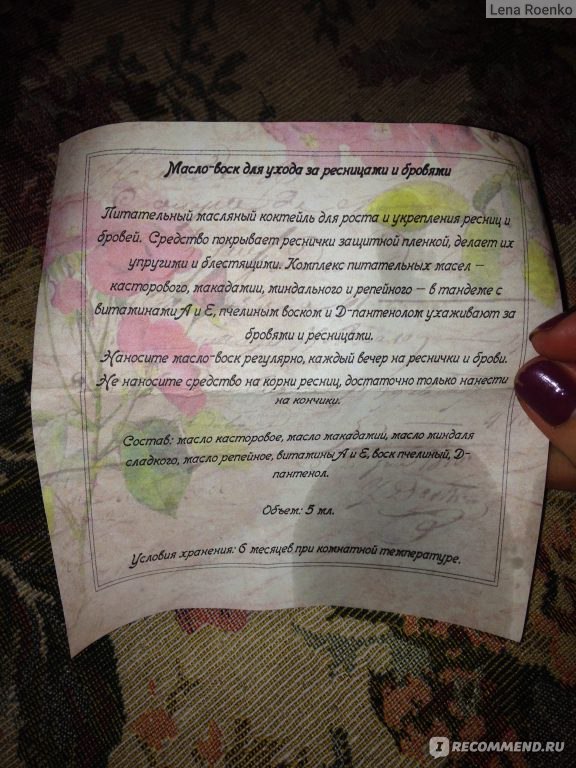 Lena Roenko
Масло-воск для ухода за ресницами и бровями
Питательный масляный коктейль для роста и укрепления ресниц и
бровей. Средство покрывает реснички защитной пленкой, делает их
упругими и блестящими. Комплекс питательных масел –
касторового, макадамии, миндального и репейного – в тандеме с
витаминами А и Е, пчелиным воском и Д-пантенолом ухаживают за
бровями и ресницами.
Наносите масло-воск регулярно, каждый вечер на реснички и брови.
Не наносите средство на корни ресниц, достаточно только нанести
на кончики.
Состав: масло касторовое, масло макадамии, масло миндаля
сладкого, масло репейное, витамины А и Е, воск пчелиный, Д-
пантенол.
Объем: 5 мл.
Условия хранения: 6 месяцев при комнатной температуре.
IRECOMMEND.RU